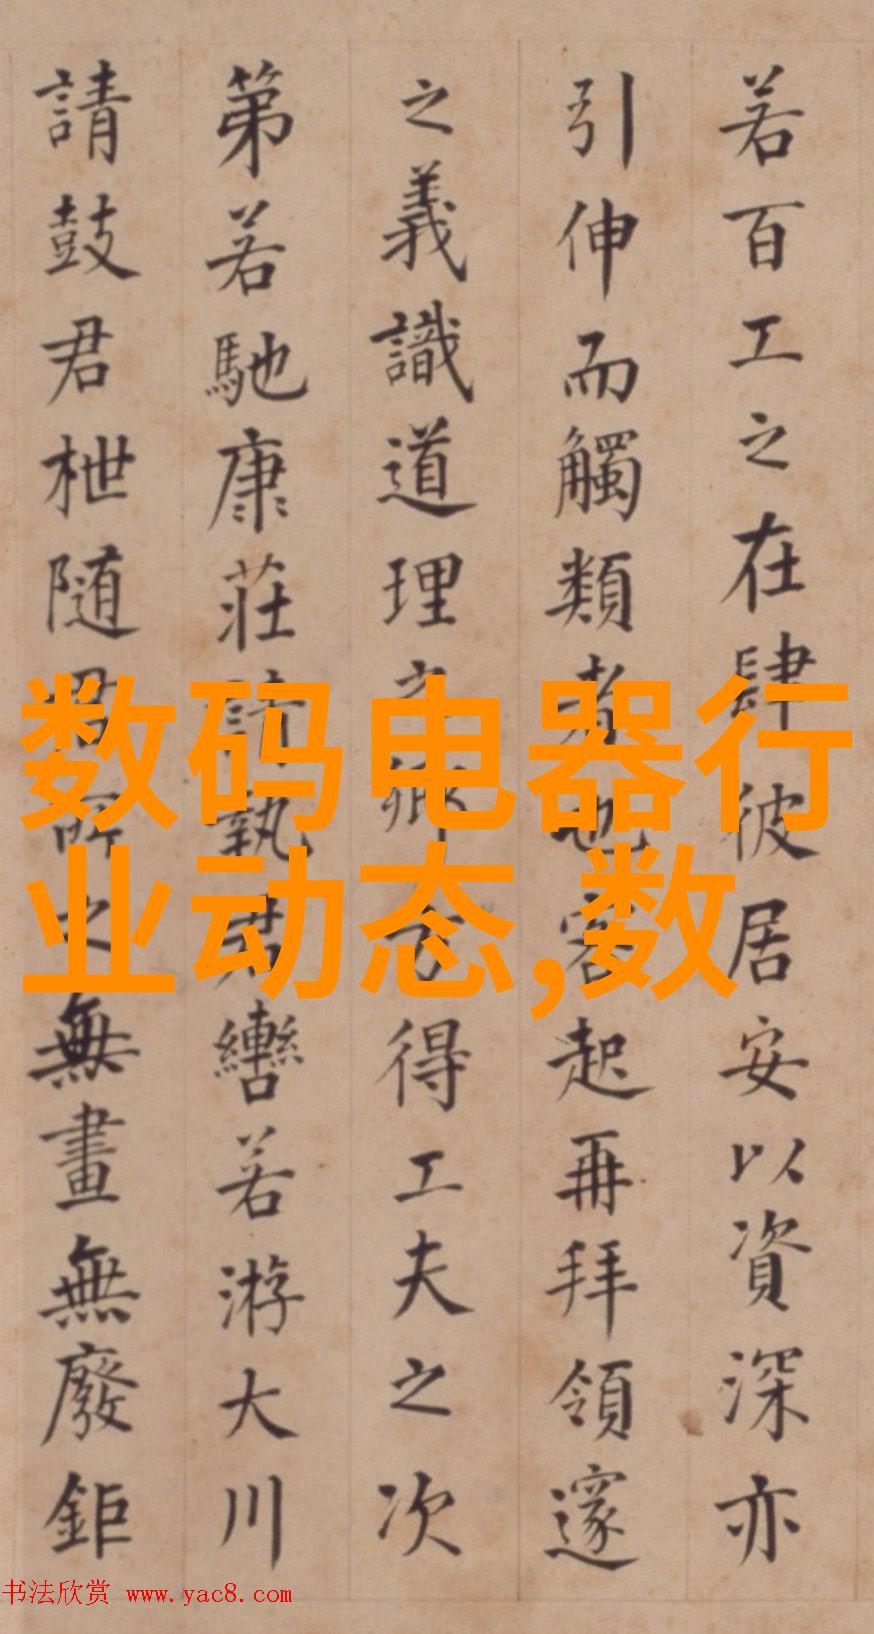 若百工之在肆彼居安以資深亦
引伸而觸類者也客起再拜領邃
之義識道理之鄉得工夫之次
第若馳康莊請執君轡若游大川
請鼓君枻随君所之無畫無廢鉅
数码电器行
业动态,数
书法欣赏 www.yac8.com